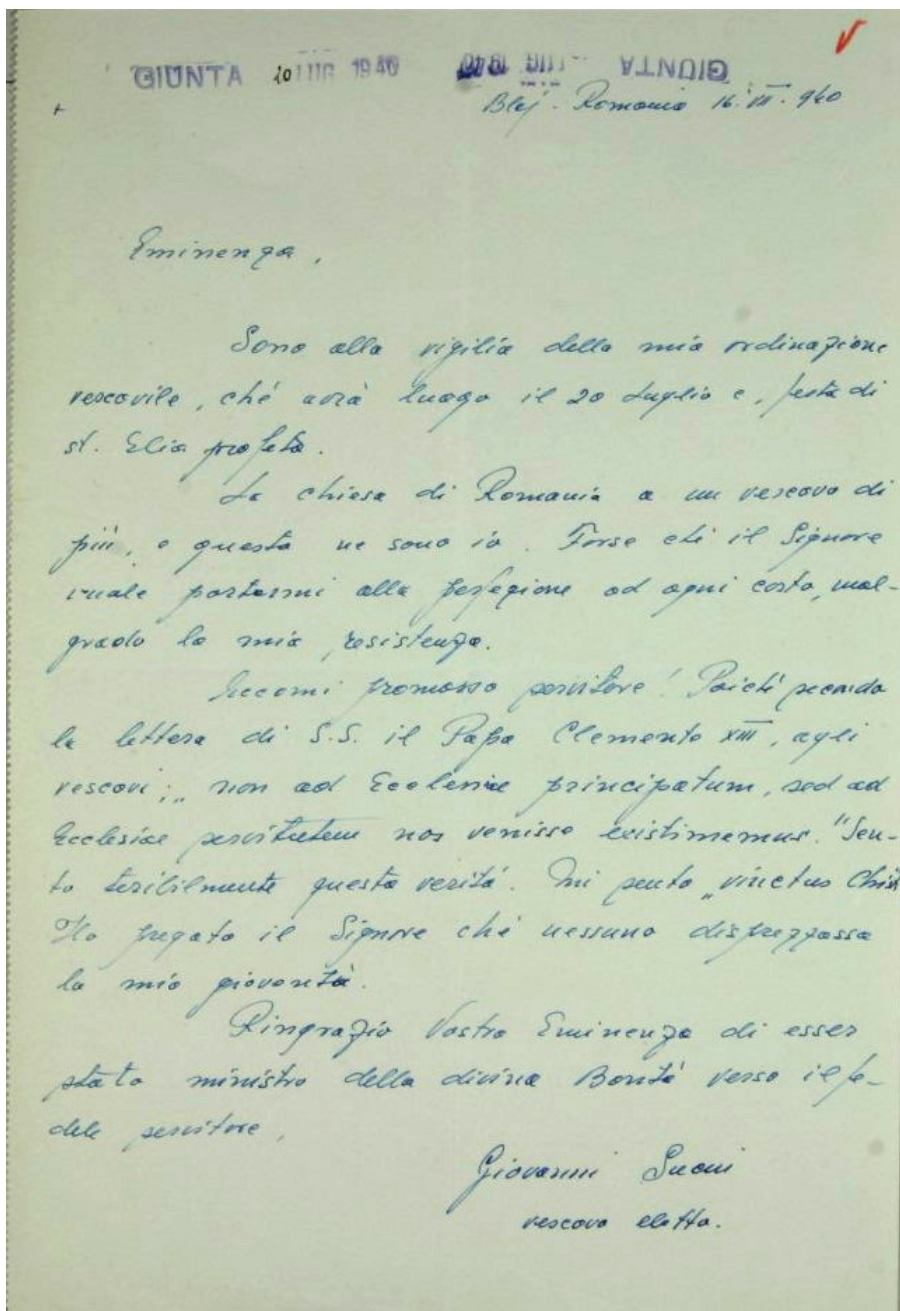 GIUNTA 20 LUG 1940 GIUNTA LUG 1940
+ Blaj. Romania 16. VII. 940
Eminenza,
Sono alla vigilia della mia ordinazione
vescovile, ché avrà luogo il 20 Luglio c, festa di
st. Elia profeta.
La chiesa di Romania a un vescovo di
più, e questo ne sono io. Forse ché il Signore
vuole portarmi alla perfezione ad ogni costo, mal-
grado la mia resistenza.
Eccomi promosso servitore! Poiché secondo
la lettera di S.S. il Papa Clemente XIII, agli
vescovi: „non ad Ecclesiae principatum, sed ad
Ecclesiae servitutem nos venisse existimemus." Sen-
to teribilmente questa verità. Mi sento „vinctus Christi
Ho pregato il Signore ché nessuno disprezzasse
la mia gioventà.
Ringrazio Vostra Eminenza di esser
stato ministro della divina Bontà verso il fe-
dele servitore,
Giovanni Suciu
vescovo eletto.